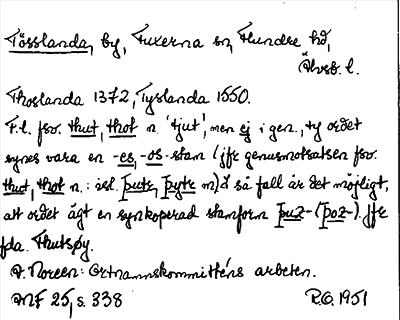 Tösslanda, by, Tuxerna sn, Flundre hd,
Älvsb. l.
Thoslanda 1372, Tyslanda 1550.
F.l. fsv. thut, thot n. 'tjut', men ej i gen., ty ordet
synes vara en -es, -os-stam (jfr genusmotsatsen fsv.
thut, thot n.: isl. þutr, þytr m). I så fall är det möjligt,
att ordet ägt en synkoperad stamform þuz- (þoz-). Jfr
fda. Thutsþy.
A. Noreen: Ortnamnskommitténs arbeten.
NF 25, s. 338 R.O. 1951